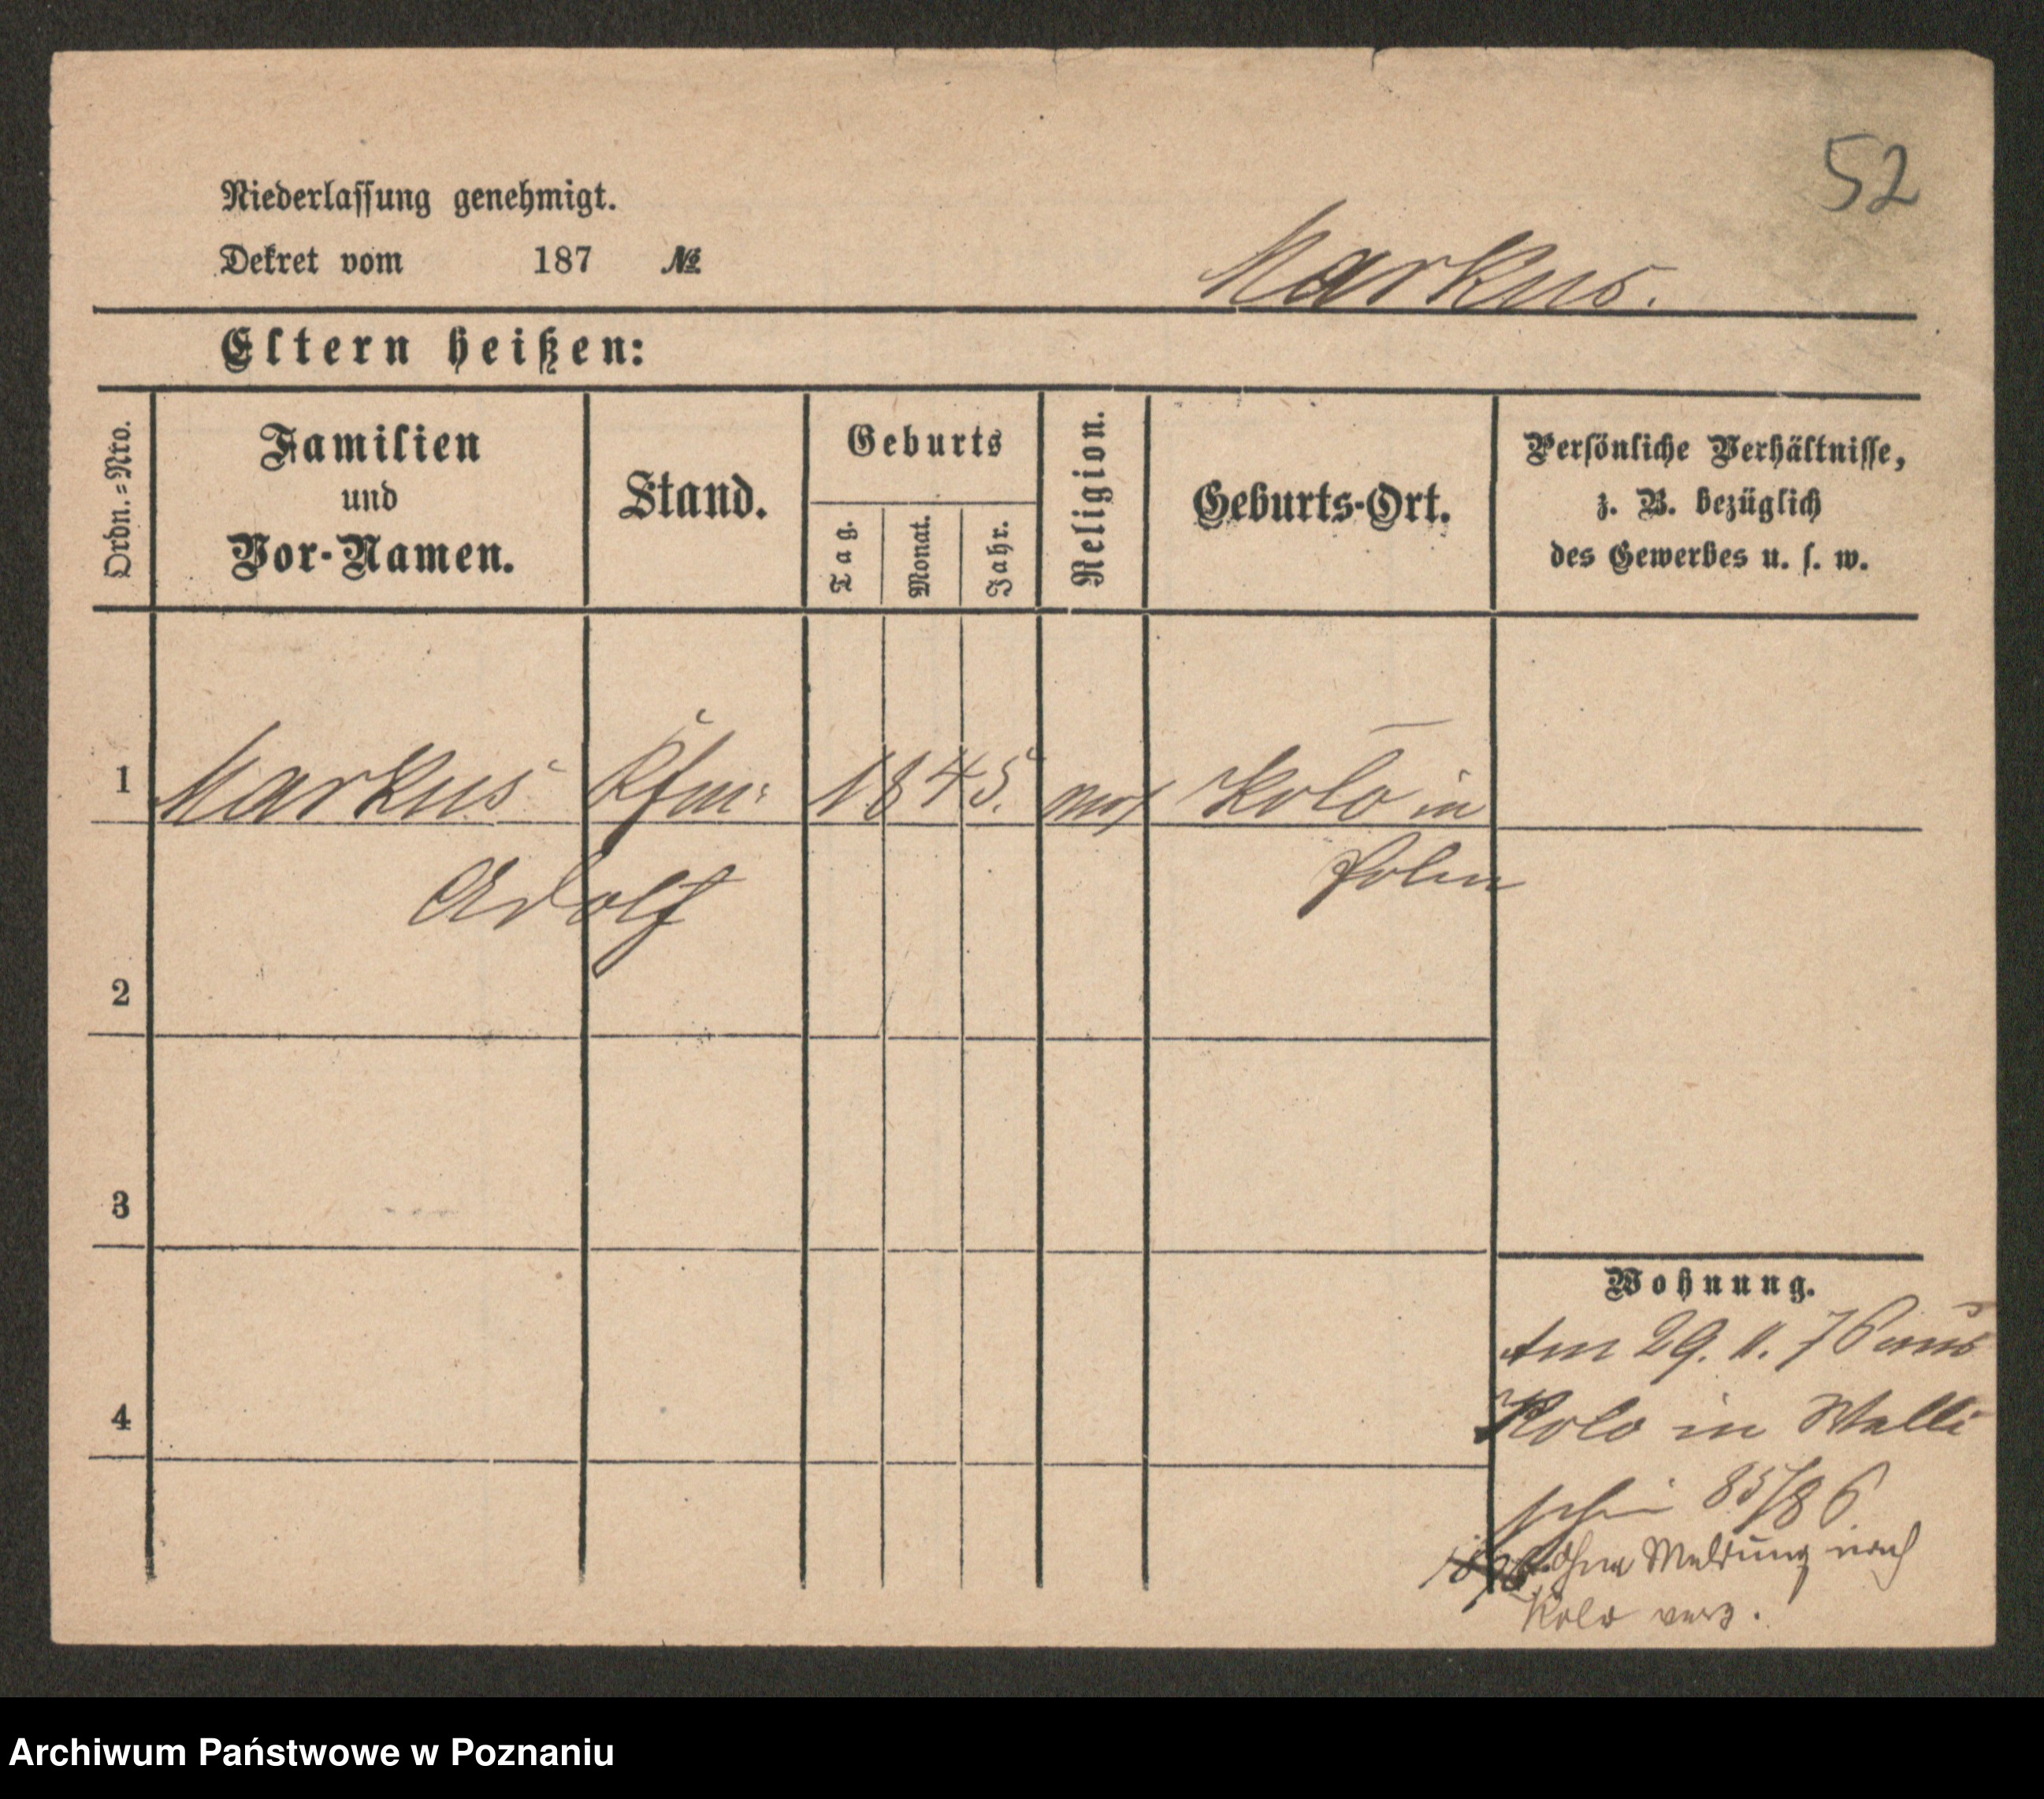 52
Niederlassung genehmigt.
Dekret vom 187 №
Markus.
Eltern heißen:
Ordn.=Nro.
Familien
und
Vor-Namen.
Stand.
Geburts
Tag.
Monat.
Jahr.
Religion.
Geburts-Ort.
Persönliche Verhältnisse,
z. B. bezüglich
des Gewerbes u. s. w.
1 Markus Kfm: 1845. mos Kolo in
Adolf Polen
2
3
4
Wohnung.
Am 29. 11. 76 aus
Kolo in Walli
schei 85/86
Ohne Meldung nach
Kolo verz.
Archiwum Państwowe w Poznaniu